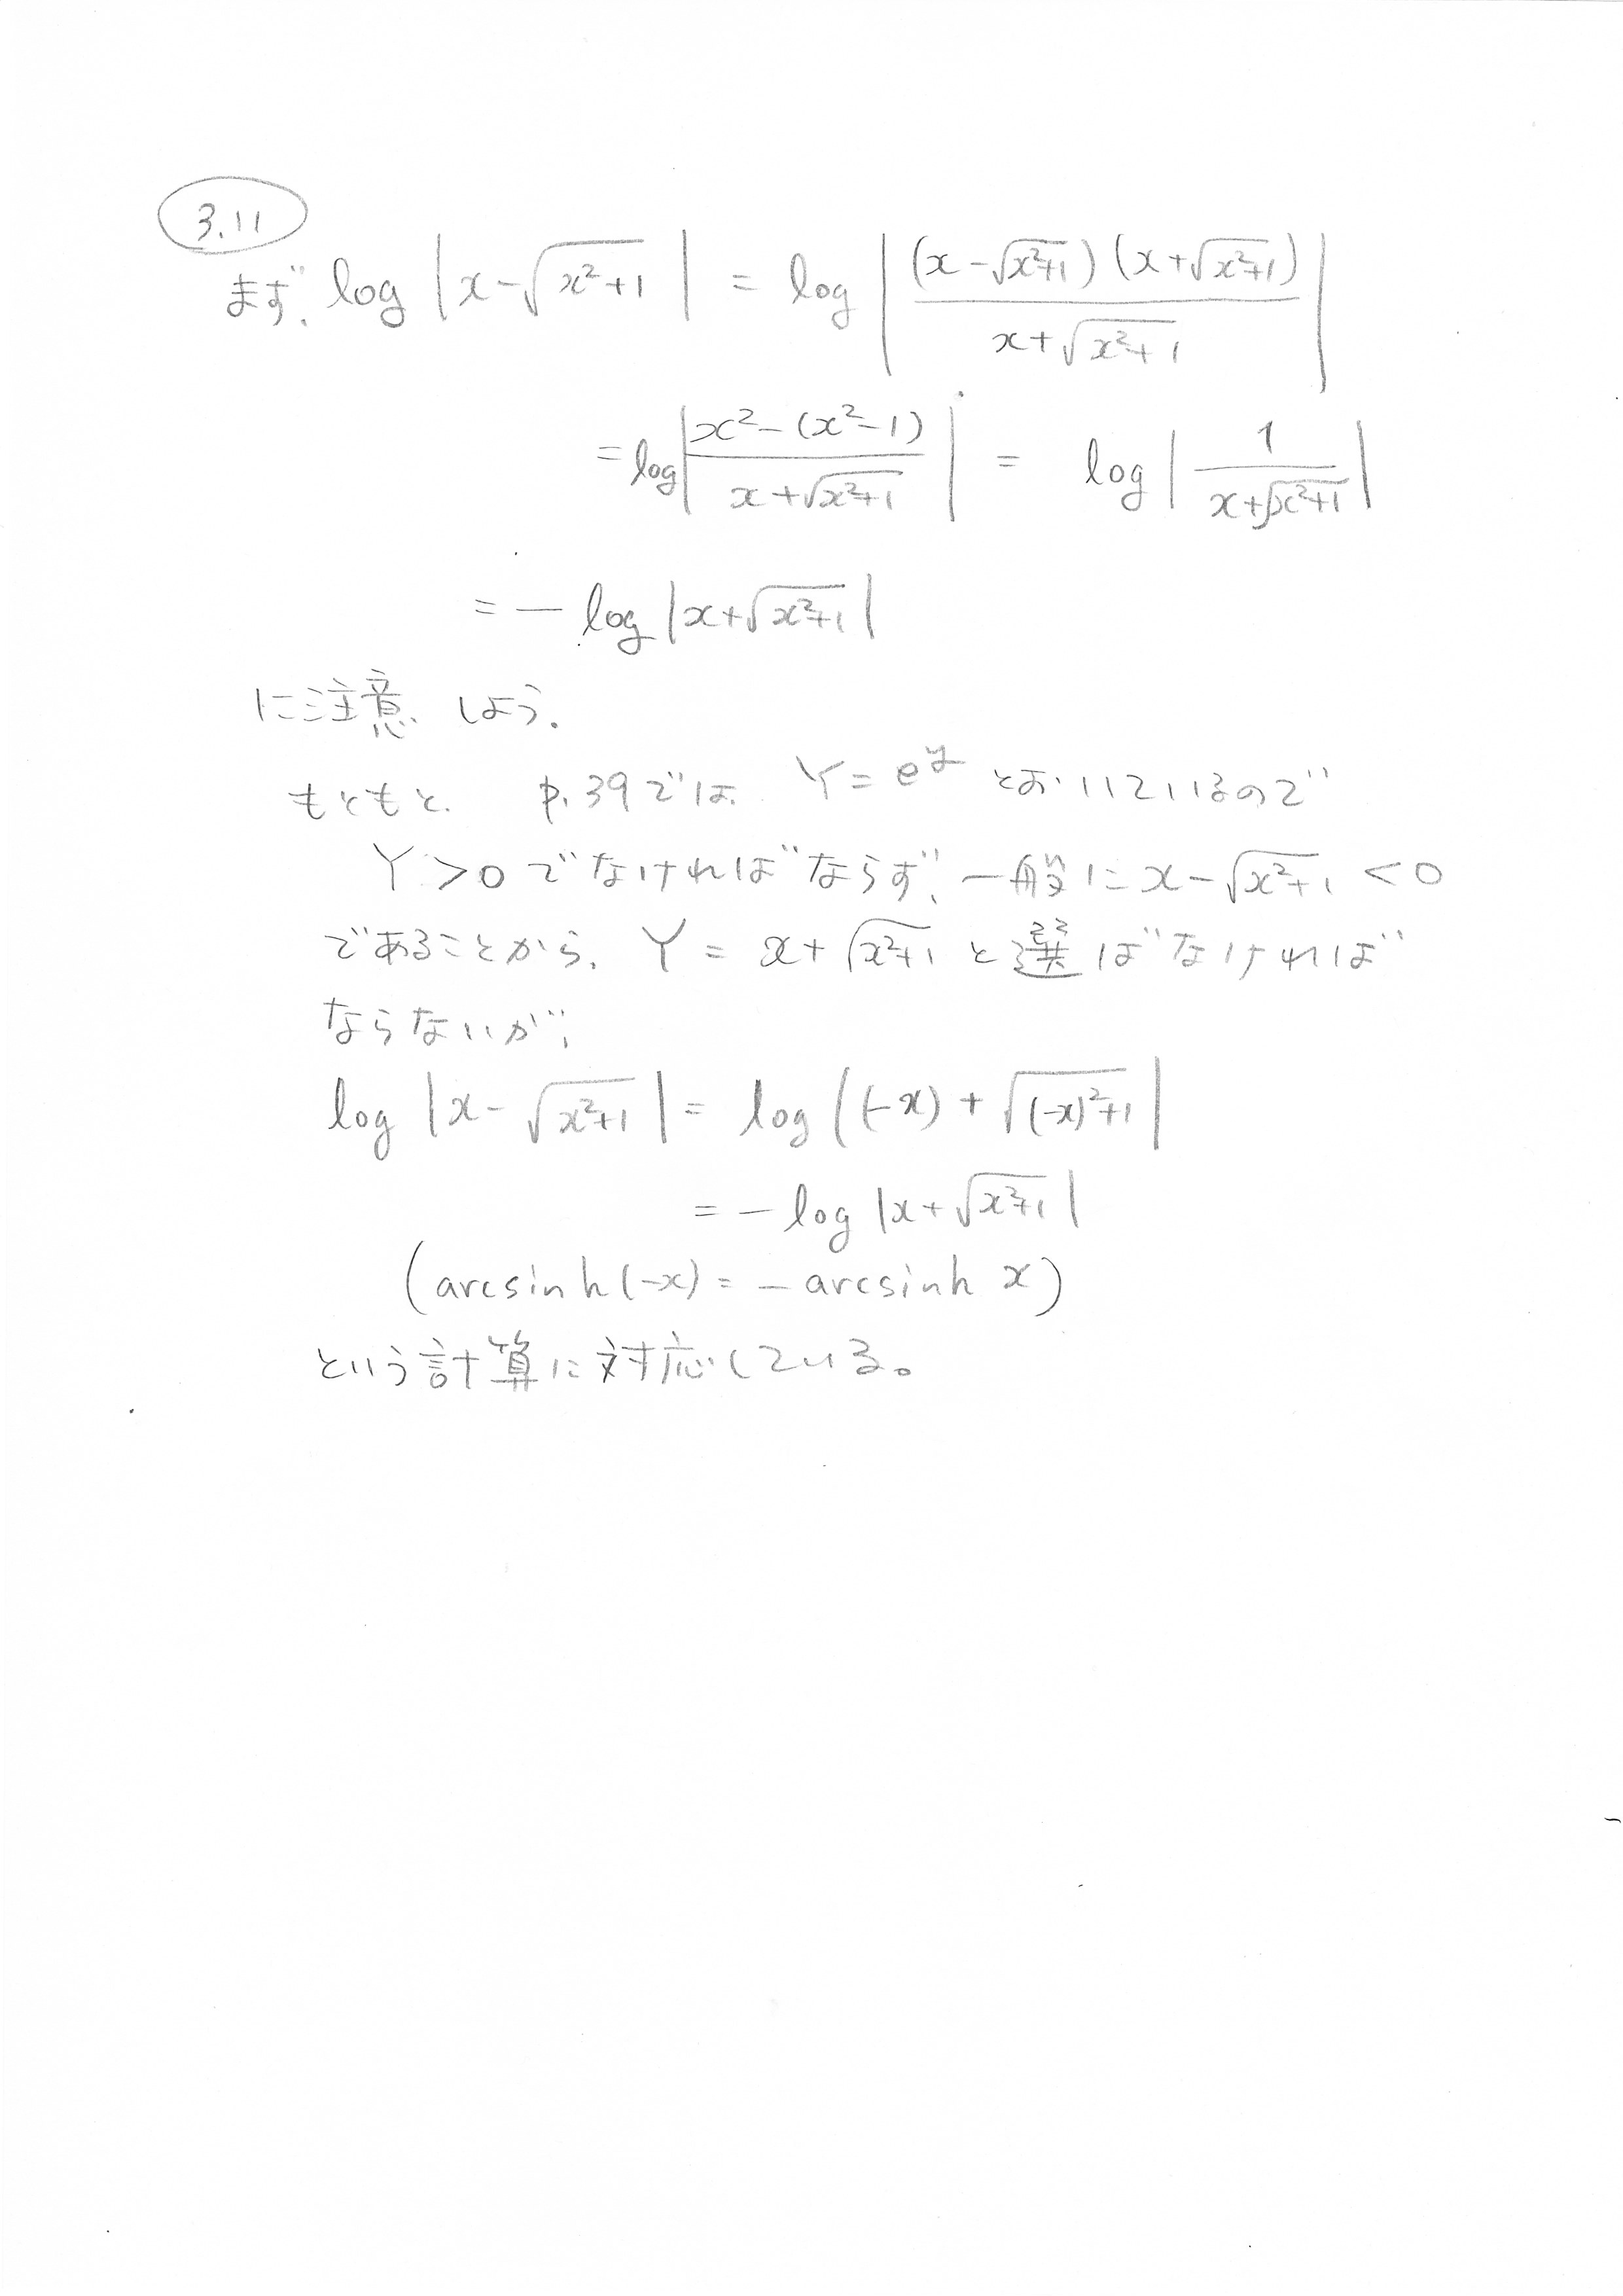 3.11
まず、log |x-√(x²+1)| = log |(x-√(x²+1))(x+√(x²+1)) / (x+√(x²+1))|
= log |(x²-(x²-1)) / (x+√(x²+1))| = log |1 / (x+√(x²+1))|
= - log |x+√(x²+1)|
に注意しよう.
もともと、p.39では、Y = e^y とおいているので
Y > 0 でなければならず、一般に x-√(x²+1) < 0
であることから、Y = x+√(x²+1) と選ばなければ
ならないが、
log |x-√(x²+1)| = log |(-x)+√((-x)²+1)|
= - log |x+√(x²+1)|
(arcsinh(-x) = - arcsinh x)
という計算に対応している。